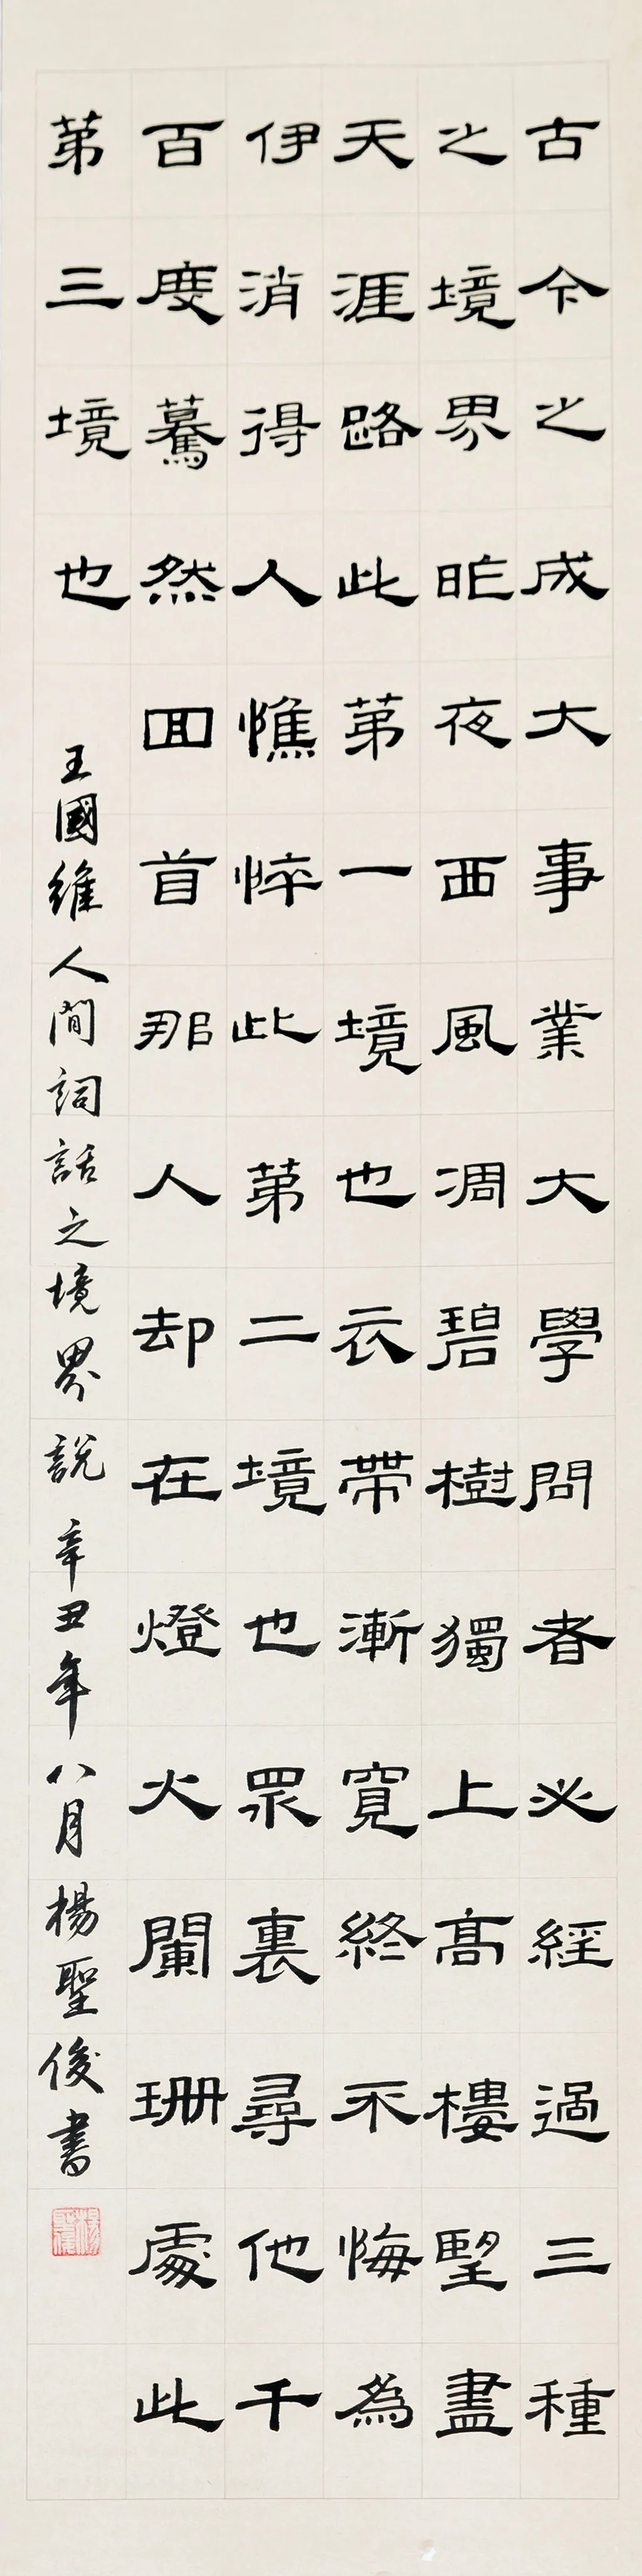 古今之成大事業大學問者必經過三種
之境界昨夜西風凋碧樹獨上高樓望盡
天涯路此第一境也衣帶漸寬終不悔為
伊消得人憔悴此第二境也眾裏尋他千
百度驀然回首那人却在燈火闌珊處此
第三境也
王國維人間詞話之境界說辛丑年八月楊聖俊書